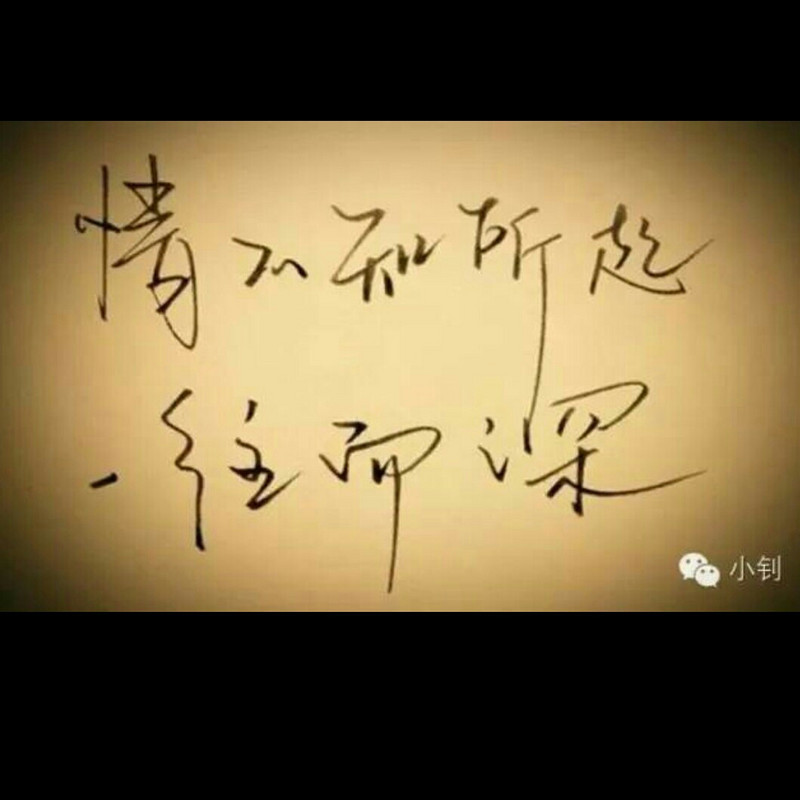 情不知所起
一往而深
小钊